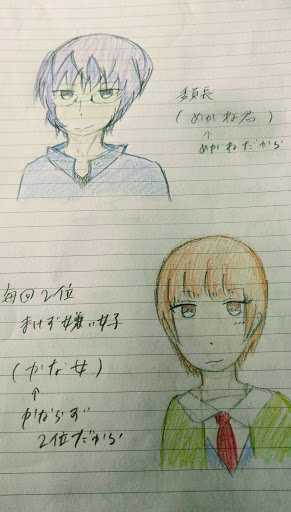 委員長
(めがね君)
↑
めがねだから
毎回2位
まけず嫌い女子
(かな女)
↑
かならず
2位だから